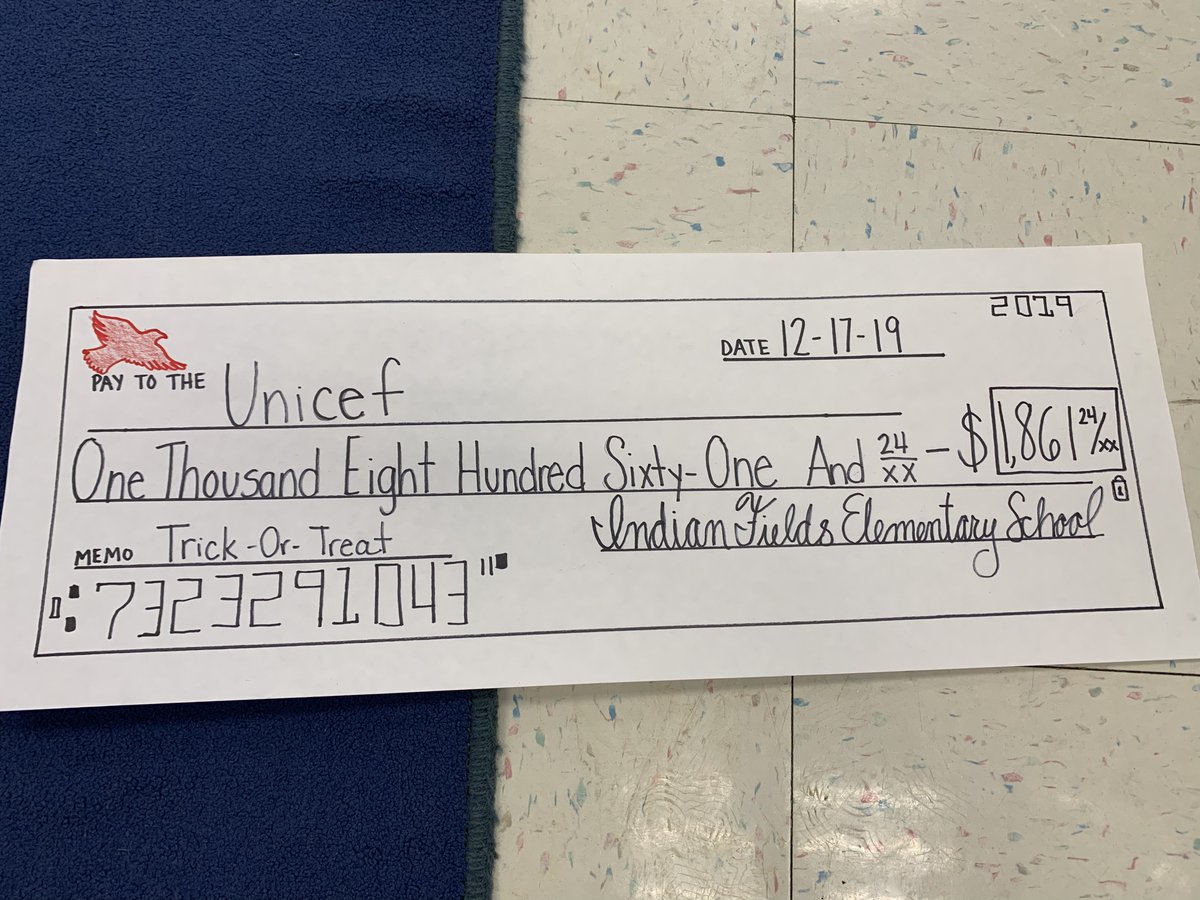 2019
DATE 12-17-19
PAY TO THE Unicef
$1,861 24/xx
One Thousand Eight Hundred Sixty-One And 24/xx -
Indian Fields Elementary School
MEMO Trick-Or-Treat
7323291043